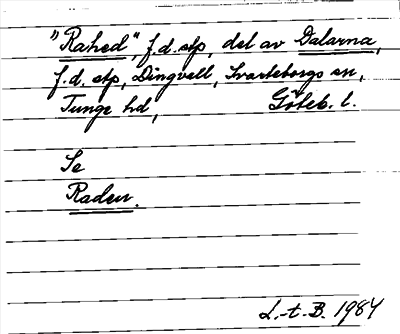 "Rahed", f.d. stp, del av Dalarna,
f.d. stp, Dingvall, Svarteborgs sn,
Tunge hd, Göteb. l.
Se
Raden.
L.-t. B. 1984